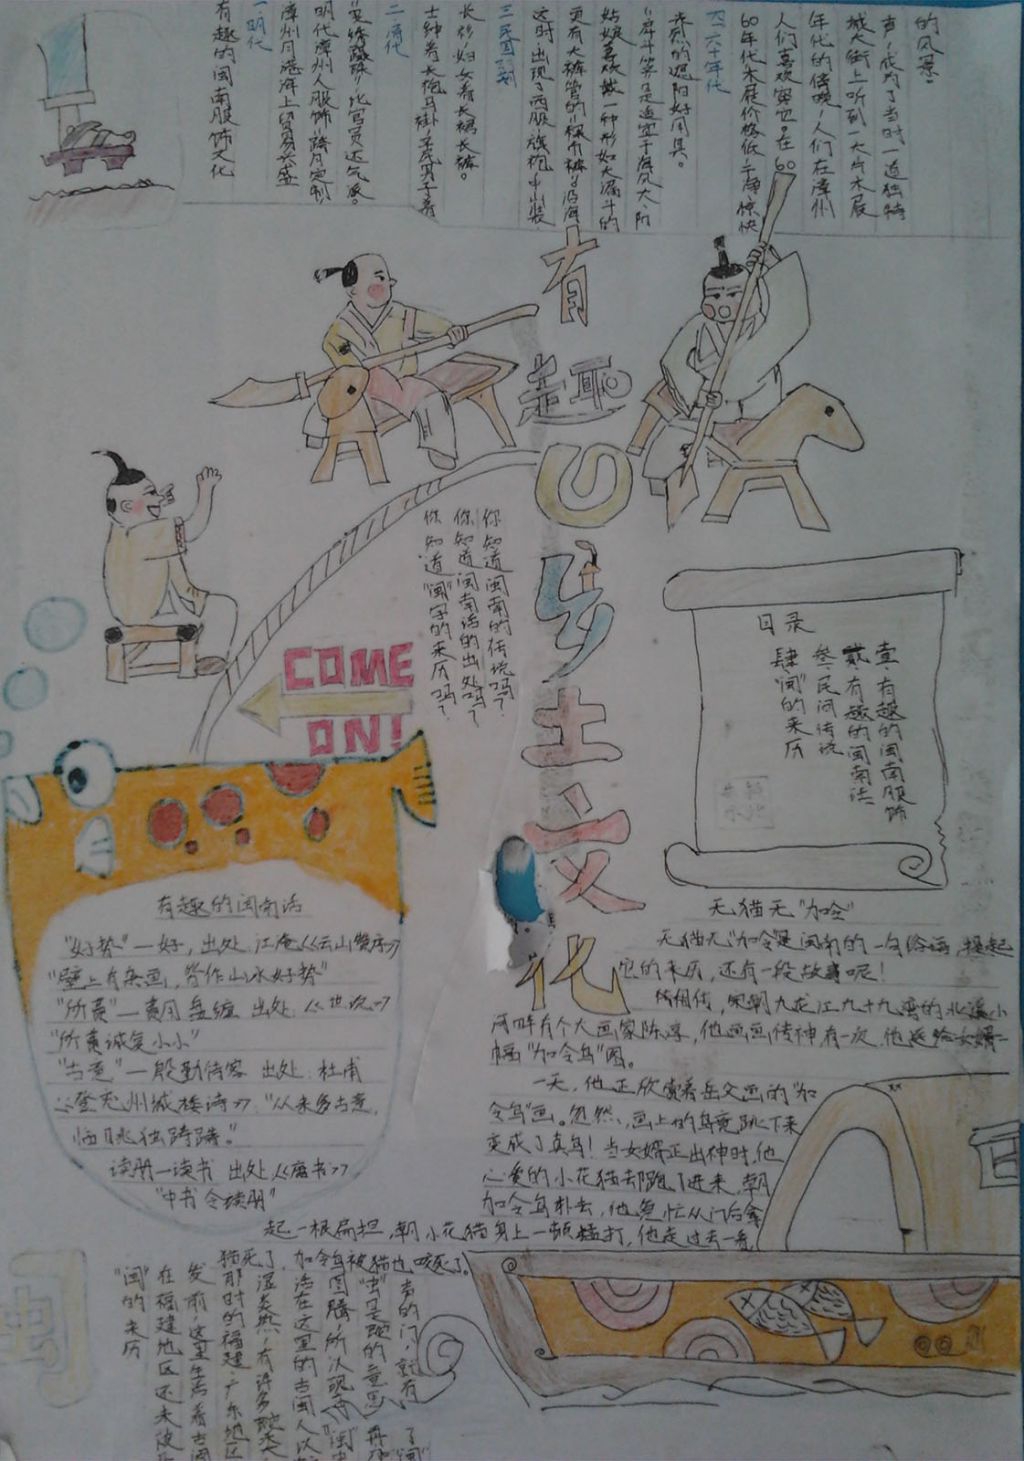 有趣的乡土文化
有趣的闽南服饰文化
一.明代
漳州月港海上贸易兴盛
明代漳州人服饰"跨月定制
比官员还气派。
二.清代
士绅着长袍马褂,
长衫,妇女着长裙长裤。
三.民国时期
这时,出现了西服,旗袍,中山装,
更有大裤管的
姑娘喜欢戴一种形如大漏斗的
是适宜于海风大,阳
的遮阳好用具。
四.六十年代
60年代木屐价格低,干净惊快
人们喜欢穿它。在60
年代的傍晚,人们在漳州
城大街上听到一大片木屐
声,成为了当时一道独特
的风景。
你知道闽南的传说吗?
你知道闽南话的出处吗?
你知道"闽"字的来历吗?
COME
ON!
目录
壹.有趣的闽南服饰
贰.有趣的闽南话
叁.民间传说
肆."闽"的来历
有趣的闽南话
"好势"—好,出处:江淹
"壁上有杂画,皆作山水好势"
"所费"—费用盘缠 出处:
"所费诚复小小"
"古意"—殷勤待客 出处:杜甫
《登兖州城楼诗》:"从来多古意,
临眺独踌躇。"
读册—读书 出处《唐书》
"中书令读册"
无猫无"加令"
无猫无"加令"是闽南的一句俗语,提起
它的来历,还有一段故事呢!
九龙江九十九湾的北溪小
河畔有个大画家陈 他画画传神,有一次,他送给女婿一
幅"加令鸟"图。
一天,他正欣赏着岳父画的"加
令鸟"画。忽然,画上的鸟竟跳下来
变成了真鸟!当女婿正出神时,他
心爱的小花猫却跑了进来,朝
加令鸟扑去,他急忙从门后拿
起一根扁担,朝小花猫身上一顿猛打,他走过去一看,
猫死了,加令鸟被猫也咬死了。
"闽"的来历
在福建地区还未被
发前,这里生活着古闽
那时的福建,广东地区
湿炎热,有许多蛇
活在这里的古闽人以
图腾,所以现今"闽"中
"虫"是蛇的意思,再
有的门,就有了"闽"